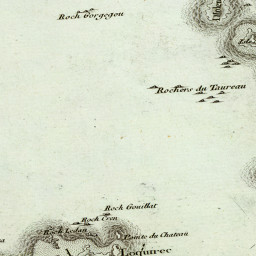 Roch Gorgegou
Rochers du Taureau
Roch Gouillat
Roch Cren
Roch Ledan
Pointe du Chateau
Loquirec